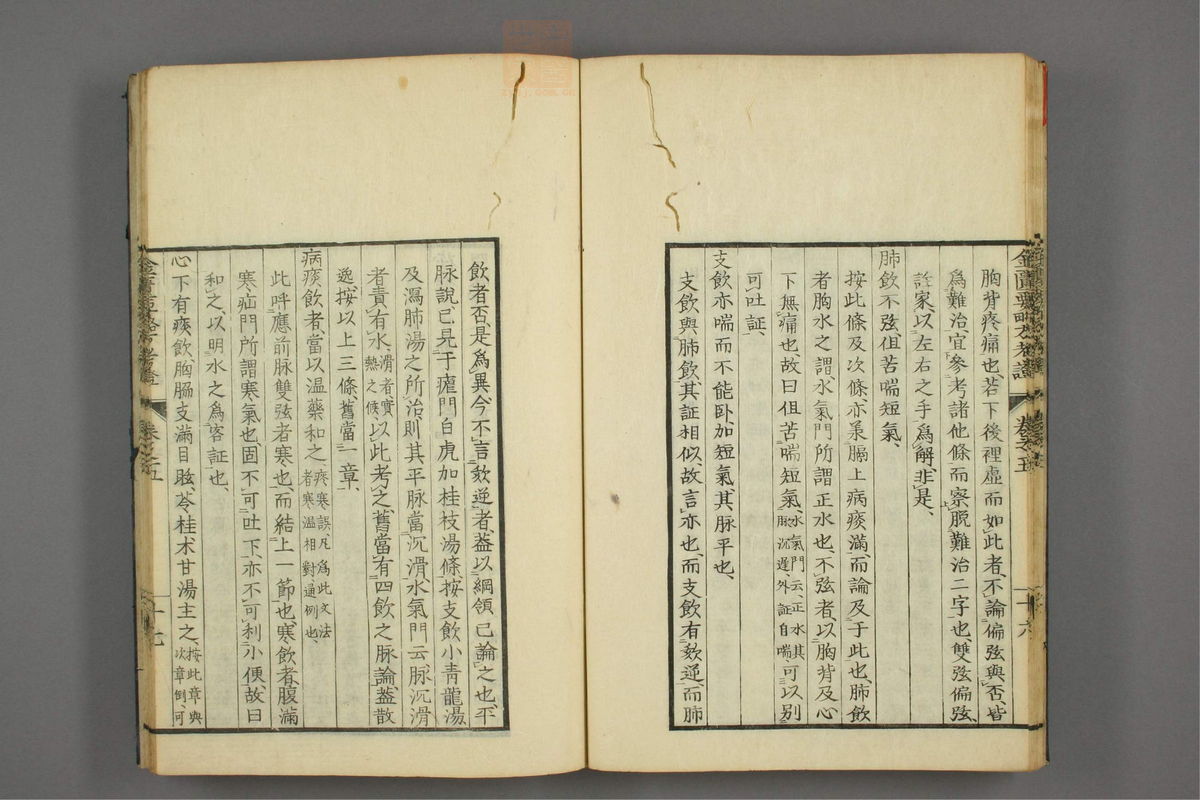 金匱要略方考證 卷之五 十六
胸背疼痛也、若下後裡虛而如此者、不論偏弦與否、皆
爲難治、宜參考諸他條而察脫難治二字也、雙弦偏弦、
詮家以左右之手爲解、非是、
肺飲不弦、但苦喘短氣、
按此條及次條亦承膈上病痰滿、而論及于此也、肺飲
者、胸水之謂、水氣門所謂正水也、不弦者、以胸背及心
下無痛也、故曰但苦喘短氣、水氣門云、正水其脈沉遲、外証自喘、可以別
可吐証、
支飲亦喘而不能臥、加短氣、其脈平也、
支飲與肺飲、其証相似、故言亦也、而支飲有欬逆、而肺
飲者否、是爲異、今不言欬逆者、蓋以綱領已論之也、平
脈說已見于瘧門白虎加桂枝湯條、按支飲小青龍湯
及瀉肺湯之所治、則其平脈當沉滑、水氣門云、脈沉滑
者責有水、滑者實熱之候、以此考之、舊當有四飲之脈論、蓋散
逸、按以上三條舊當一章、
病痰飲者、當以温藥和之、疼寒誤、凡爲此文法者、寒温相對、通例也、
此呼應前脈雙弦者寒也、而結上一節也、寒飲者腹滿
寒疝門所謂寒氣也、固不可吐下、亦不可利小便、故曰
和之、以明水之爲客証也、
心下有痰飲、胸脇支滿、目眩、苓桂朮甘湯主之、按此章與次章倒、可
金匱要略方考證 卷之五 十七